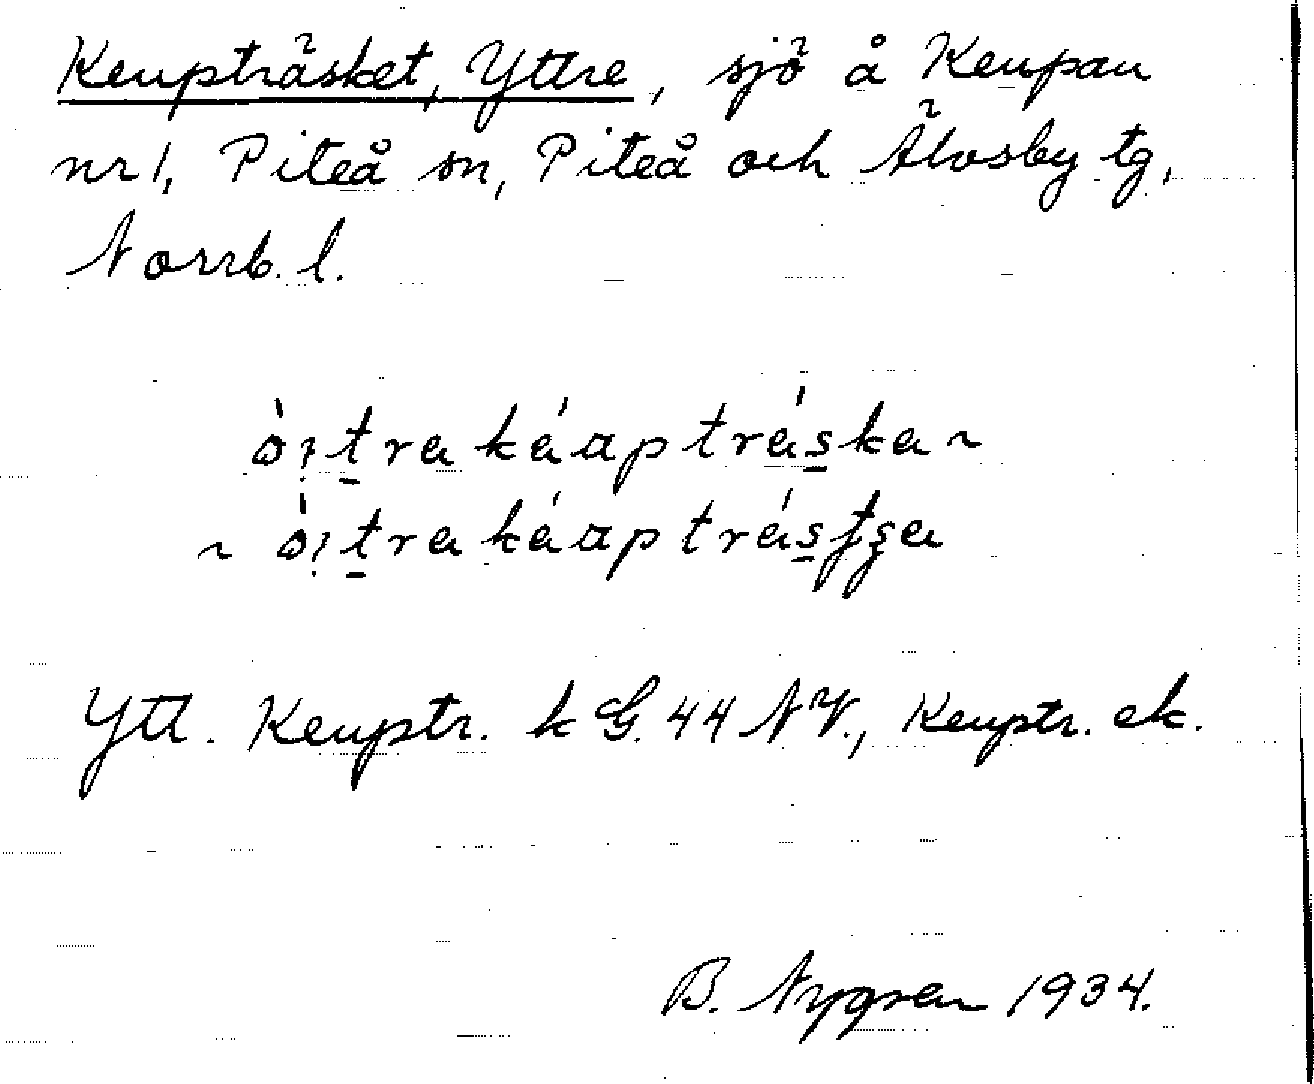 Keupträsket, Yttre, sjö å Keupan
nr 1, Piteå sn, Piteå och Älvsby tg,
Norrb. l.
Ytt. Keuptr. k G. 44 NV., Keuptr. ek.
B. Nygren 1934.